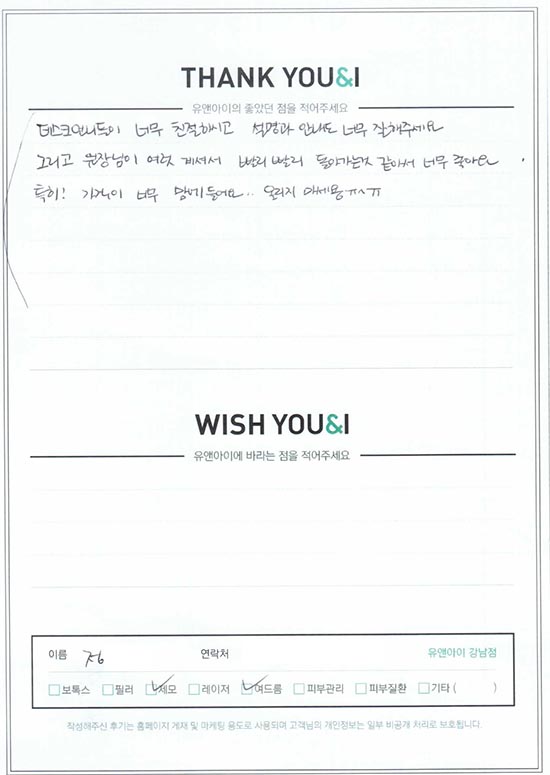 THANK YOU&I
유앤아이의 좋았던 점을 적어주세요
데스크언니들이 너무 친절하시고 설명과 안내도 너무 잘해주세요
그리고 원장님이 여럿 계셔서 빨리빨리 돌아가는거 같아서 너무 좋아요.
특히! 가격이 너무 맘에 들어요.. 올리지 마세용ㅠㅅㅠ
WISH YOU&I
유앤아이에 바라는 점을 적어주세요
이름 정 연락처 유앤아이 강남점
보톡스 필러 제모 레이저 여드름 피부관리 피부질환 기타 ( )
작성해주신 후기는 홈페이지 게재 및 마케팅 용도로 사용되며 고객님의 개인정보는 일부 비공개 처리로 보호됩니다.